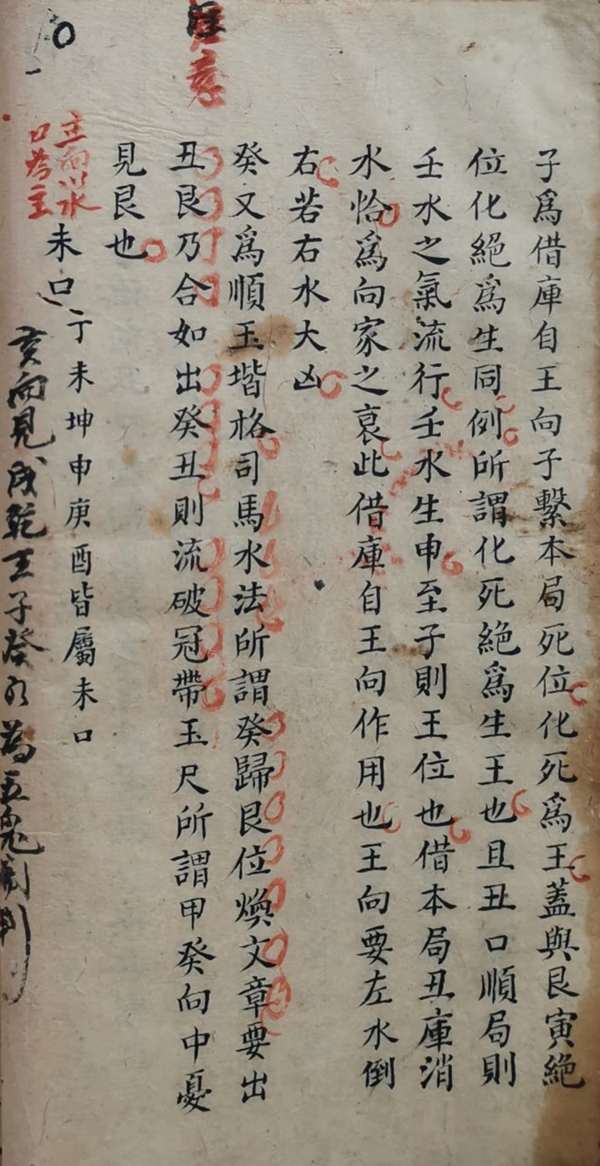 子爲借庫自王向子繫本局死位化死爲王蓋與艮寅絶
位化絕爲生同例所謂化死絕爲生王也且丑口順局則
壬水之氣流行壬水生申至子則王位也借本局丑庫消
水恰爲向家之衰此借庫自王向作用也王向要左水倒
右若右水大凶
癸又爲順玉堦格司馬水法所謂癸歸艮位煥文章要出
丑艮乃合如出癸丑則流破冠帶玉尺所謂甲癸向中憂
見艮也
主向以水
口為主
未口
丁未坤申庚酉皆屬未口
亥向見戌乾壬子癸水為五鬼